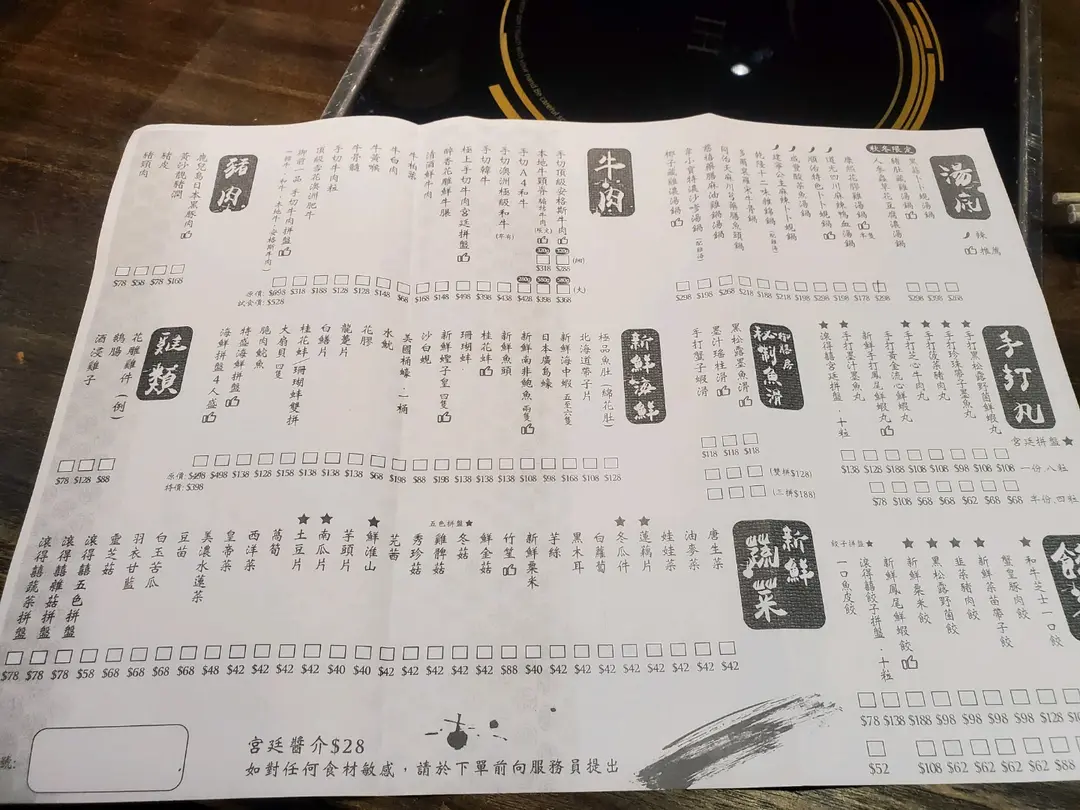 湯底
辣
推薦
秋冬限定
黑蒜卜卜蜆湯鍋
豬肚藏雞湯鍋
人參蟲草花豆腐濃湯鍋
康熙花膠雞湯鍋
道光四川麻辣鴨血湯鍋
順治特色卜卜蜆鍋
咸豐酸菜魚湯鍋
建寧公主麻辣卜卜蜆鍋
乾隆十二味雜錦鍋
慈禧藥膳麻油雞鍋湯鍋
椰子藏雞濃湯鍋
$298 $198 $268 $218 $188 $218 $198 $178 $298
$298 $298 $268
牛肉
手切頂級安格斯牛肉
本地牛頸脊
手切A4和牛
手切澳洲極級和牛
手切韓牛
極上手切牛肉宮廷拼盤
醉香花雕鮮牛𦟌
清湯鮮牛肉
牛柏葉
牛白肉
牛黃喉
牛骨髓
手切牛肉粒
頂級杏花澳洲肥牛
御前一品 手切牛肉拼盤
(韓牛、和牛、本地牛、安格斯牛肉)
$318 $288 (細)
$428 $398 $368 (大)
原價: $698 $318 $188 $128 $128 $148 $68 $168 $148 $498 $398 $438
試食價: $528
豬肉
鹿兒島日本黑豚肉
黃沙靚豬潤
豬皮
豬頸肉
$78 $58 $78 $168
手打丸
宮廷拼盤★
手打黑松露野菌鮮蝦丸
手打珍珠帶子墨魚丸
手打菠菜豬肉丸
手打芝心牛肉丸
手打黃金流心鮮蝦丸
新鮮手打鳳尾鮮蝦丸
手打墨汁墨魚丸
滾得囍宮廷拼盤:十粒
$138 $128 $188 $108 $108 $98 $108 $108 一份.八粒
$78 $108 $68 $68 $62 $68 $68 半份.四粒
御膳房
秘制魚滑
黑松露墨魚滑
墨汁瑤柱滑
手打蟹子蝦滑
$118 $118 $118
(雙拼$128)
(三拼$188)
新鮮海鮮
極品魚肚(綿花肚)
北海道帶子片
新鮮海中蝦 五至六隻
日本廣島蠔
新鮮南非鮑魚 兩隻
新鮮魚頭
桂花蚌
珊瑚蚌
新鮮鱆子皇 四隻
沙白蜆
美國桶蠔:一桶
水魷
花膠
龍躉片
白鱔片
桂花蚌.珊瑚蚌雙拼
大扇貝 四隻
脆肉鯇魚
特盛海鮮拼盤
海鮮拼盤4人盛
原價: $498 $498 $138 $128 $158 $138 $138 $138 $68 $198 $88 $198 $138 $138 $138 $108 $98 $168 $108 $128
特價: $398
雞類
花雕雞件(例)
鵝腸
酒浸雞子
$78 $128 $88
餃子拼盤★
和牛芝士一口餃
蟹皇豚肉餃
新鮮菜苗帶子餃
韮菜豬肉餃
黑松露野菌餃
新鮮粟米餃
新鮮鳳尾鮮蝦餃
滾得囍餃子拼盤:十粒
一口魚皮餃
$78 $138 $188 $98 $98 $98 $128
$52 $108 $62 $62 $62 $62 $88
新鮮蔬菜
唐生菜
油麥菜
娃娃菜
蓮藕片
冬瓜件
白蘿蔔
黑木耳
芋絲
新鮮粟米
竹笙
鮮金菇
冬菇
雞髀菇
秀珍菇
五色拼盤★
芫茜
鮮淮山
芋頭片
南瓜片
土豆片
茼蒿
西洋菜
皇帝菜
美濃水蓮菜
豆苗
白玉苦瓜
羽衣甘藍
靈芝菇
滾得囍五色拼盤
滾得囍雜菇拼盤
滾得囍蔬菜拼盤
$78 $78 $78 $58 $68 $68 $68 $68 $48 $42 $42 $42 $42 $40 $40 $42 $42 $42 $42 $42 $88 $40 $42 $42 $42 $42 $42 $42 $42
宮廷醬介$28
如對任何食材敏感,請於下單前向服務員提出
號: